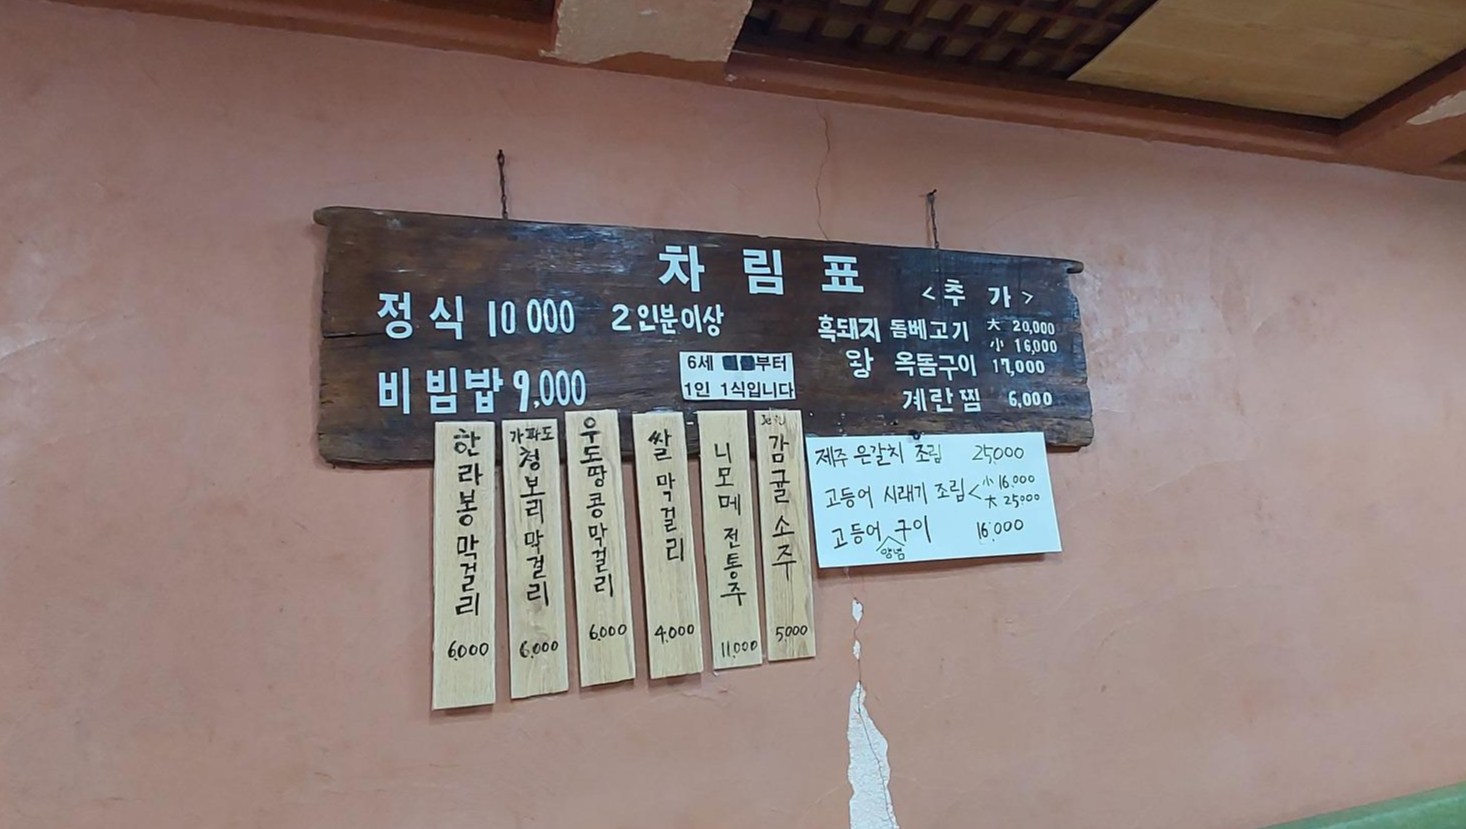 차림표
정식 10000 2인분이상
비빔밥 9,000
6세 부터
1인 1식입니다
<추 가>
흑돼지 돔베고기 大 20,000
小 16,000
왕 옥돔구이 17,000
계란찜 6,000
한라봉막걸리 6,000
가파도 청보리막걸리 6,000
우도땅콩막걸리 6,000
쌀막걸리 4,000
니모메전통주 11,000
감귤소주 5,000
제주 은갈치 조림 25,000
고등어 시래기 조림< 小 16.000
大 25000
고등어 양념 구이 16.000